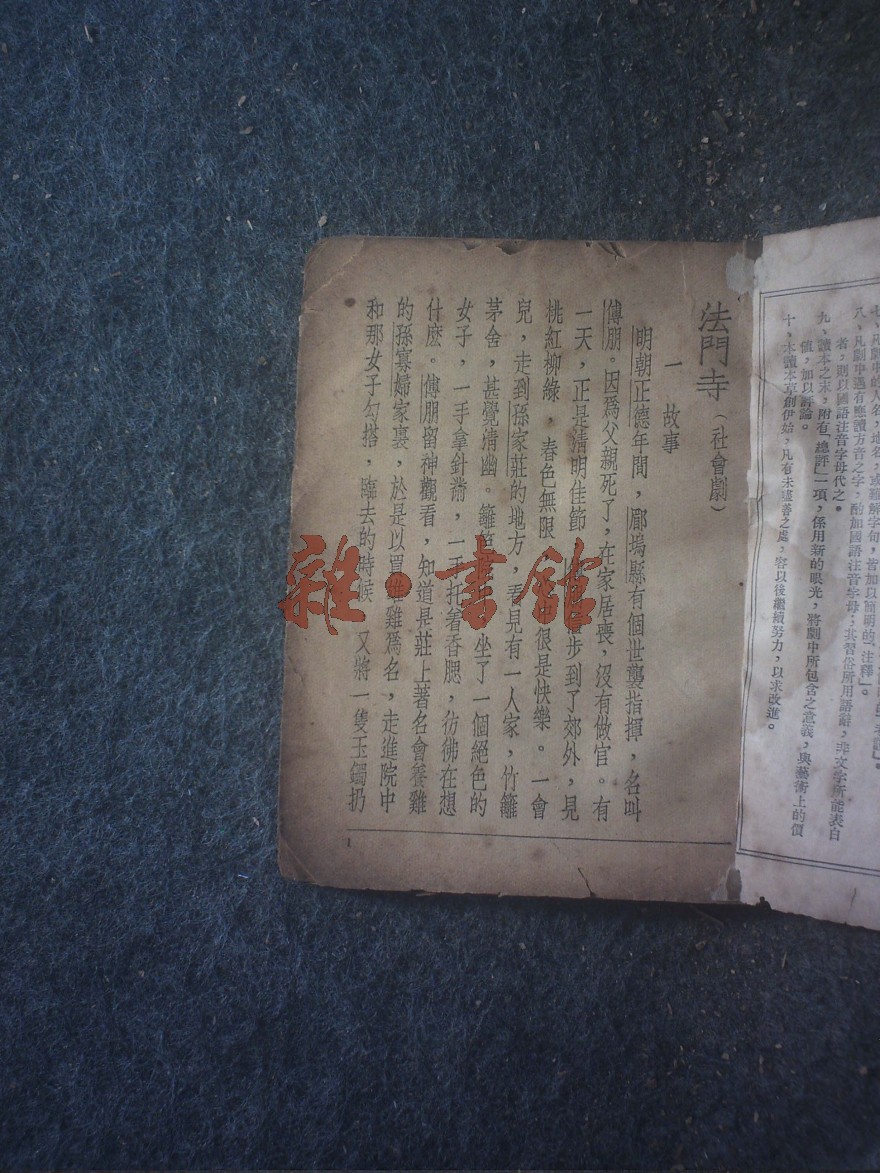 七、凡劇中的人名，地名，或難解字句，皆加以簡明的「注釋」。
八、凡劇中遇有應讀方音之字，酌加國語注音字母；其習俗所用語辭，非文字所能表白
者，則以國語注音字母代之。
九、讀本之末，附有「總評」一項，係用新的眼光，將劇中所包含之意義，與藝術上的價
值，加以評論。
十、本讀本草創伊始，凡有未盡善之處，容以後繼續努力，以求改進。
法門寺（社會劇）
一　故事
明朝正德年間，郿塢縣有個世襲指揮，名叫
傅朋。因爲父親死了，在家居喪，沒有做官。有
一天，正是清明佳節，步到了郊外，見
桃紅柳綠，春色無限，很是快樂。一會
兒，走到孫家莊的地方，看見有一人家，竹籬
茅舍，甚覺清幽。籬笆坐了一個絕色的
女子，一手拿針黹，一手托着香腮，彷彿在想
什麽。傅朋留神觀看，知道是莊上著名會養雞
的孫寡婦家裏，於是以買雄雞爲名，走進院中
和那女子勾搭，臨去的時候，又將一隻玉鐲扔
1
雜·書館